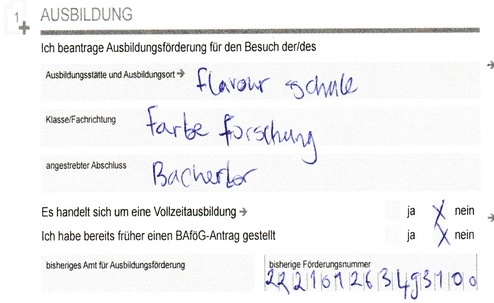 1 AUSBILDUNG
Ich beantrage Ausbildungsförderung für den Besuch der/des
Ausbildungsstätte und Ausbildungsort → flavour schule
Klasse/Fachrichtung Farbe forschung
angestrebter Abschluss Bacherlor
Es handelt sich um eine Vollzeitausbildung → ja X nein
Ich habe bereits früher einen BAföG-Antrag gestellt ja X nein
bisheriges Amt für Ausbildungsförderung bisherige Förderungsnummer
222161263493100